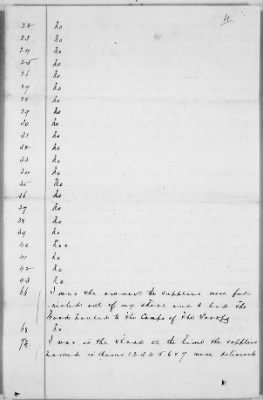 4
22 No
23 No
24 No
25 No
26 No
27 No
28 No
29 No
30 No
31 No
32 No
33 No
34 No
35 No
36 No
37 No
38 No
39 No
40 Yes
41 No
42 No
43 No
I was the owner the supplies were fur-
nished out of my store and I had the
Wood hauled to the Camps of the Troops
No
I was in the store at the time the supplies
named in items 1 2 3 4 5 6 & 7 were delivered